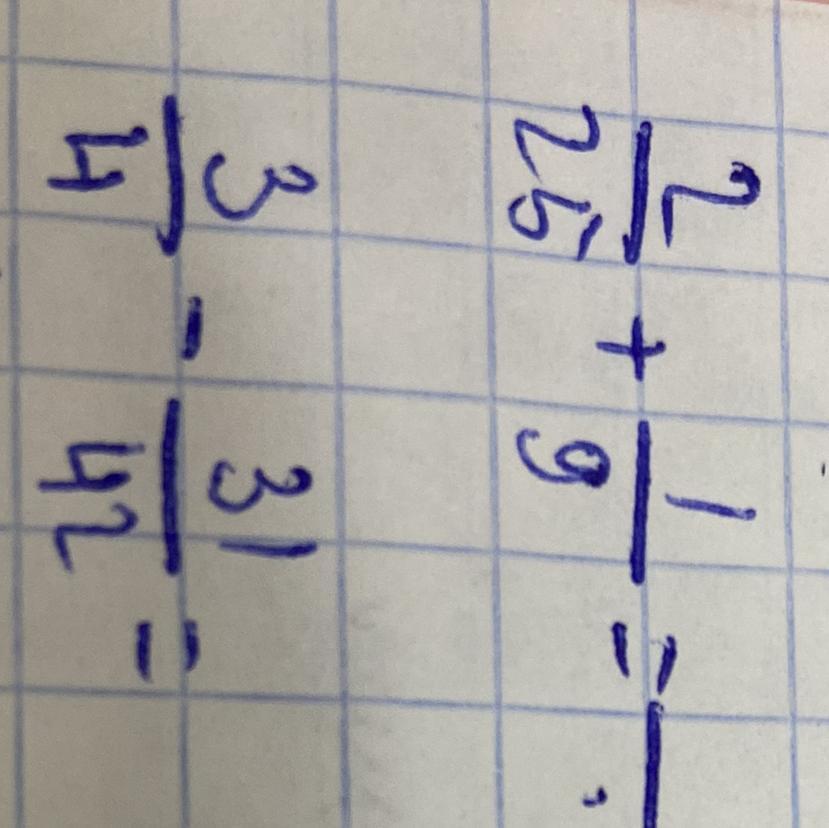 2/25 + 1/9 =
3/4 - 31/42 =